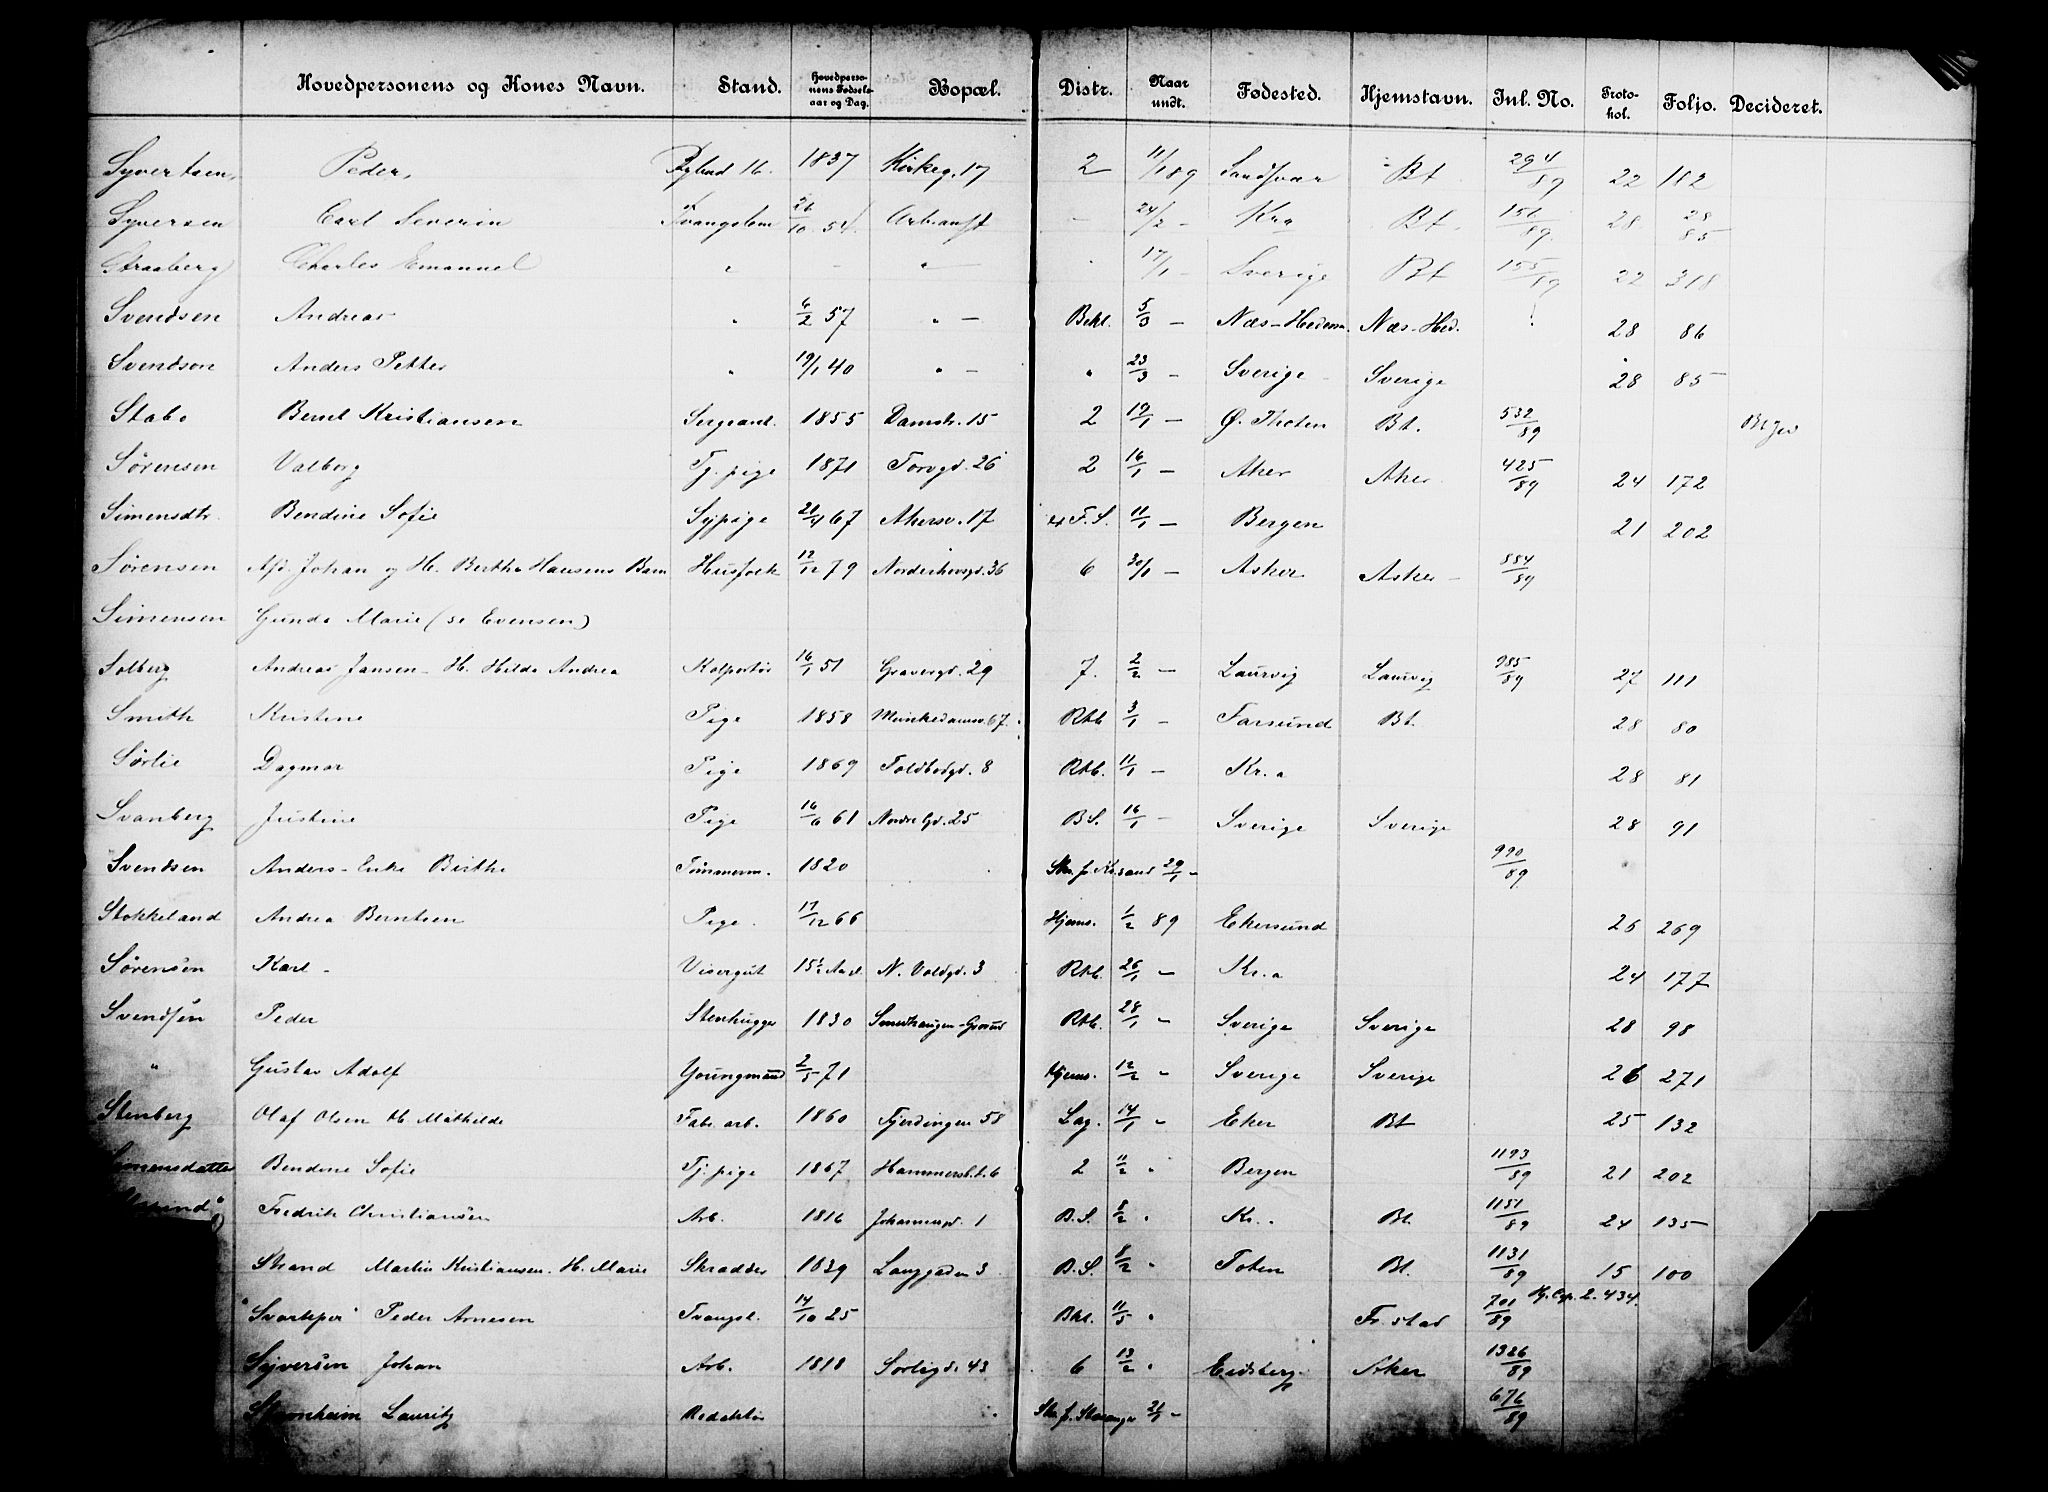 Hovedpersonens og Kones Navn. Stand. Hovedpersonens Fødselsaar og Dag. Bopæl. Distr. Naar undt. Fødested. Hjemstavn. Jnl. No. Protokol. Folio. Decideret.
Syvertsen, Peder, 16. 1837 Kirkeg. 17 2 11/1 89 Sandsvær Bt 294/89 22 182
Syversen Carl Severin Tvangslem 26/10 54 Arbeanst 24/2 - Kra Bt. 151/89 28 28/85
Straaberg Charles Emanuel " - " - 17/1 - Sverige Bt 155/89 22 318
Svendsen Andreas " 6/2 57 " - Bekl. 5/3 - Næs-Hedem. Næs-Hed. 28 86
Svendson Anders Petter " 19/1 40 " - " 23/3 - Sverige Sverige 28 85
Stabo Bernt Kristiansen Sergeant. 1855 Damstr. 15 2 19/1 - Ø. Thoten Bt. 532/89
Sørensen Valborg Tj. pige 1871 Torvgd. 26 2 16/1 - Aker Aker 425/89 24 172
Simensdtr. Bendine Sofie Sypige 21/4 67 Akersv. 17 F.S. 11/1 - Bergen 21 202
Sørensen Johan og H. Berthe Hansens Barn Husfolk 12/12 79 Norderhovsgd. 36 6 30/1 - Asker Asker - 884/89
Simensen Gunda Marie (se Evensen)
Solberg Andreas Jansen - H. Hilda Andrea Kolportør 16/1 51 Gravergd. 29 7. 2/2 - Laurvig Laurvig 985/89 27 111
Smith Kristine Pige 1858 Munkedamsv. 67. Rkb 3/1 - Farsund Bt. 28 80
Sørlie Dagmar Pige 1869 Toldbodgd. 8 Rkb. 11/1 - Kr.a 28 81
Svanberg Justine Pige 16/6 61 Nordre Gd. 25 B.S. 16/1 - Sverige Sverige 28 91
Svendsen Anders - Enke Birthe Tømmerm. 1820 Skr. f. Kr.sand 29/1 - 990/89
Stokkeland Andrea Berntsen Pige. 17/12 66 Hjems. 1/2 89 Ekersund 26 269
Sørensen Karl - Visergut 15 1/2 Aar N. Voldgd. 3 Rkb. 26/1 - Kr.a 24 177
Svendsen Peder Stenhugger 1830 Smedhaugen-Grorud Rkb. 28/1 " Sverige Sverige 28 98
" Gustav Adolf Youngmand 2/5 71 Hjems. 12/2 " Sverige Sverige 26 271
Stenberg Olaf Olsen H. Mathilde Fabr. arb. 1860 Fjerdingen 58 Lag. 14/1 " Eker Bt 25 132
Simensdatter Bendine Sofie Tj. pige 1867 Hammersb.t. 6 2 11/2 " Bergen 1193/89 21 202
Fredrik Christiansen Arb. 1816 Johannesgd. 1 B.S. 8/2 " Kr.. Bt. 1151/89 24 135
Strand Martin Kristiansen. H. Marie Skrædder 1839 Langgaden 3 B.S. 8/2 " Toten Bt. 1131/89 15 100
"Svarteper" Peder Arnesen Tvangsl. 14/10 25 Bkl. 11/5 " Fr.stad 701/89 2. 434.
Syversen Johan Arb. 1818 Sorligd. 43 6 13/2 " Eidsberg. Aker 1326/89
Stamheim Lauritz Redaktør Skr. f. Stavanger 21/1 - 676/89